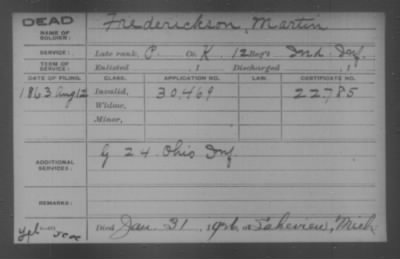 DEAD
NAME OF SOLDIER: Frederickson, Martin
SERVICE: Late rank, P. Co. K, 12 Reg't Ind. Inf.
TERM OF SERVICE: Enlisted , 1 Discharged , 1
DATE OF FILING. CLASS. APPLICATION NO. LAW. CERTIFICATE NO.
1863 Aug 12 Invalid, 30,469 22,785
Widow,
Minor,
ADDITIONAL SERVICES: G 24 Ohio Inf
REMARKS:
Died Jan. 31, at Lakeview, Mich